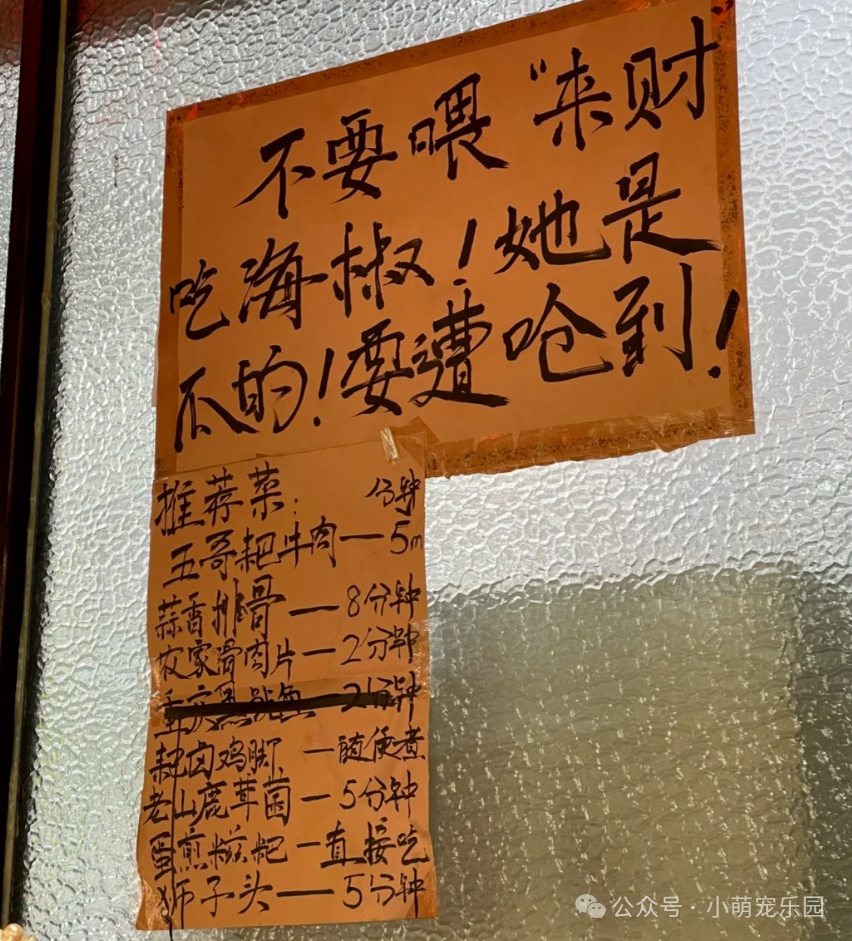 不要喂“来财
吃海椒！她是
瓜的！要遭呛到！
推荐菜： 分钟
五哥耙牛肉—5m
蒜香排骨—8分钟
农家滑肉片—2分钟
重庆 鱿鱼 2分钟
耙卤鸡脚—随便煮
老山鹿茸菌—5分钟
蛋煎糍粑—直接吃
狮子头——5分钟
公众号·小萌宠乐园